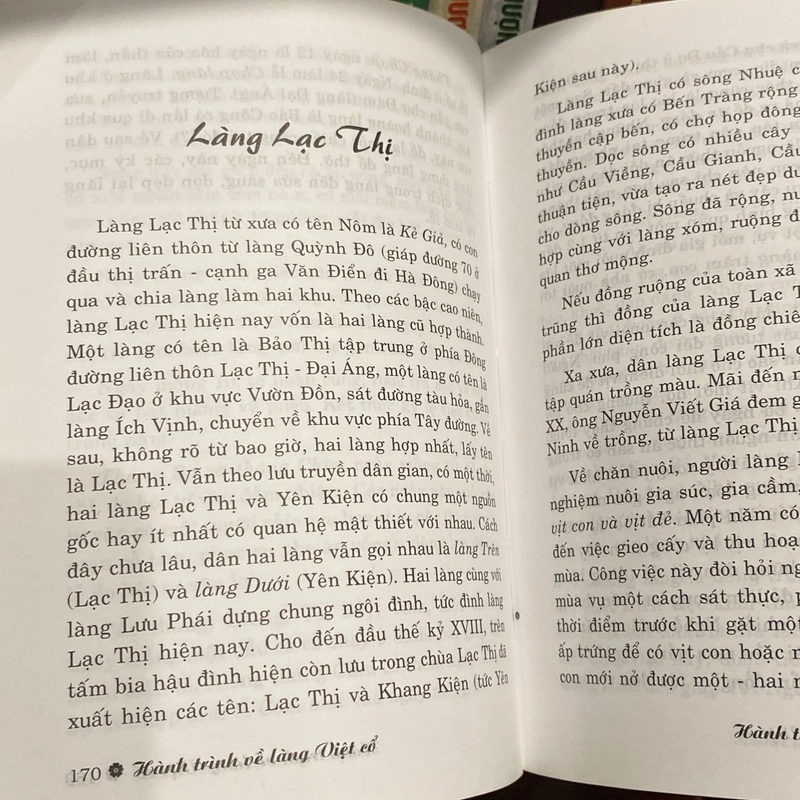 Làng Lạc Thị
Làng Lạc Thị từ xưa có tên Nôm là Kẻ Giả, có con
đường liên thôn từ làng Quỳnh Đô (giáp đường 70 ở
đầu thị trấn - cạnh ga Văn Điển đi Hà Đông) chạy
qua và chia làng làm hai khu. Theo các bậc cao niên,
làng Lạc Thị hiện nay vốn là hai làng cũ hợp thành.
Một làng có tên là Bảo Thị tập trung ở phía Đông
đường liên thôn Lạc Thị - Đại Áng, một làng có tên là
Lạc Đạo ở khu vực Vườn Đồn, sát đường tàu hỏa, gần
làng Ích Vịnh, chuyển về khu vực phía Tây đường. Về
sau, không rõ từ bao giờ, hai làng hợp nhất, lấy tên
là Lạc Thị. Vẫn theo lưu truyền dân gian, có một thời,
hai làng Lạc Thị và Yên Kiện có chung một nguồn
gốc hay ít nhất có quan hệ mật thiết với nhau. Cách
đây chưa lâu, dân hai làng vẫn gọi nhau là làng Trên
(Lạc Thị) và làng Dưới (Yên Kiện). Hai làng cùng với
làng Lưu Phái dựng chung ngôi đình, tức đình làng
Lạc Thị hiện nay. Cho đến đầu thế kỷ XVIII, trên
tấm bia hậu đình hiện còn lưu trong chùa Lạc Thị đã
xuất hiện các tên: Lạc Thị và Khang Kiện (tức Yên
170 Hành trình về làng Việt cổ
Kiện sau này).
Làng Lạc Thị có sông Nhuệ
đình làng xưa có Bến Tràng rộng
thuyền cập bến, có chợ họp đông
thuyền. Dọc sông có nhiều cây
như Cầu Viềng, Cầu Gianh, Cầu
thuận tiện, vừa tạo ra nét đẹp
cho dòng sông. Sông đã rộng,
hợp cùng với làng xóm, ruộng
quan thơ mộng.
Nếu đồng ruộng của toàn xã
trũng thì đồng của làng Lạc
phần lớn diện tích là đồng
Xa xưa, dân làng Lạc Thị
tập quán trồng màu. Mãi đến
XX, ông Nguyễn Viết Giá đem
Ninh về trồng, từ làng Lạc Thị
Về chăn nuôi, người làng
nghiệm nuôi gia súc, gia cầm,
vịt con và vịt đẻ. Một năm có
đến việc gieo cấy và thu
mùa. Công việc này đòi hỏi
mùa vụ một cách sát thực,
thời điểm trước khi gặt một
ấp trứng để có vịt con hoặc
con mới nở được một - hai
Hành